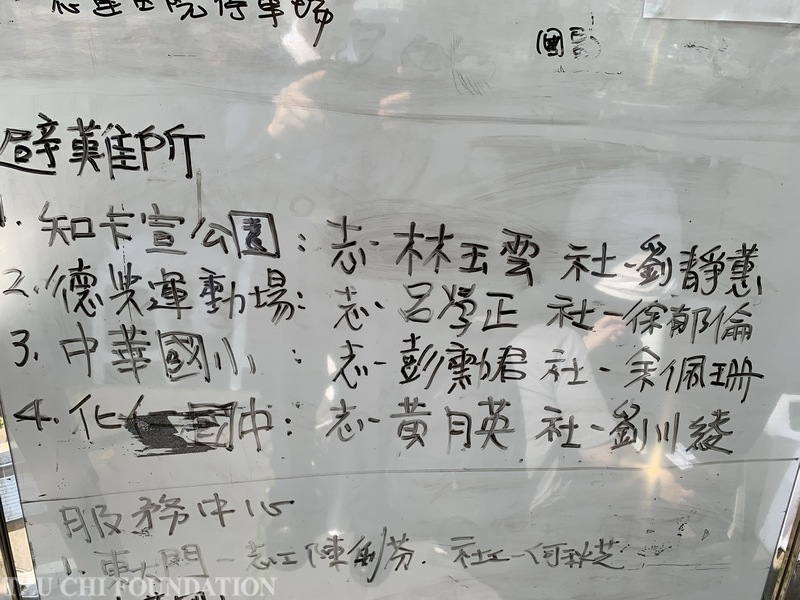 慈望醫院停車場
避難所
1. 知卡宣公園：志-林玉雲 社-劉靜蕙
2. 德興運動場：志-呂學正 社-徐郁倫
3. 中華國小：志-彭勳君 社-余佩珊
4. 化仁國中：志-黃月英 社-劉川綾
服務中心
1. 東大門-志工陳劍芬. 社工-何秋芝
TZU CHI FOUNDATION